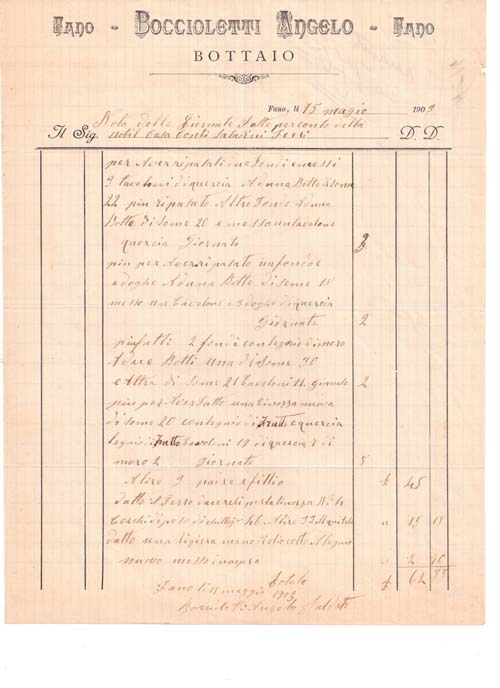 Fano - BOCCIOLETTI ANGELO - Fano
BOTTAIO
Fano, li 15 magio 1903
Nota delle Giornate Fatte per conto della
Il Sig. nobil Casa Conti Saladini D. D.
per Aver ripasati due Fondi e messi
3 tavoloni di quercia A duna Botte di some
22 piu ripasato Altro Fondo Aduna
Botte di some 20 e messo un tavolone
quercia Giornate 3
piu per Aver ripasato un fondo e
e doghe Aduna Botte di some 18
messo un tavolone e 3 doghe di quercia
Giornate 2
piu fatti 2 fondi con legnio di moro
A due Botti una di some 30
e Altra di some 21 tavoloni 11 giornate 2
piu per Aver Fatto una tinozza nuova
di some 20 con legnio di Frutti e quercia
legnio di Frutto tavoloni 19 di quercia 7 di
moro 2 Giornate
A lire 3 £ 45
dato Ferro da cerchi per la tinozza N. 4
Cerchi di peso di chilleg. 46 A lire 33 Al quintale " 15 18
datto una ligiera mano di olio cotto Al legnio
nuovo messo in opera
Totale £ 62
Fano li 15 maggio 1903
Boccioletti Angelo Saldati